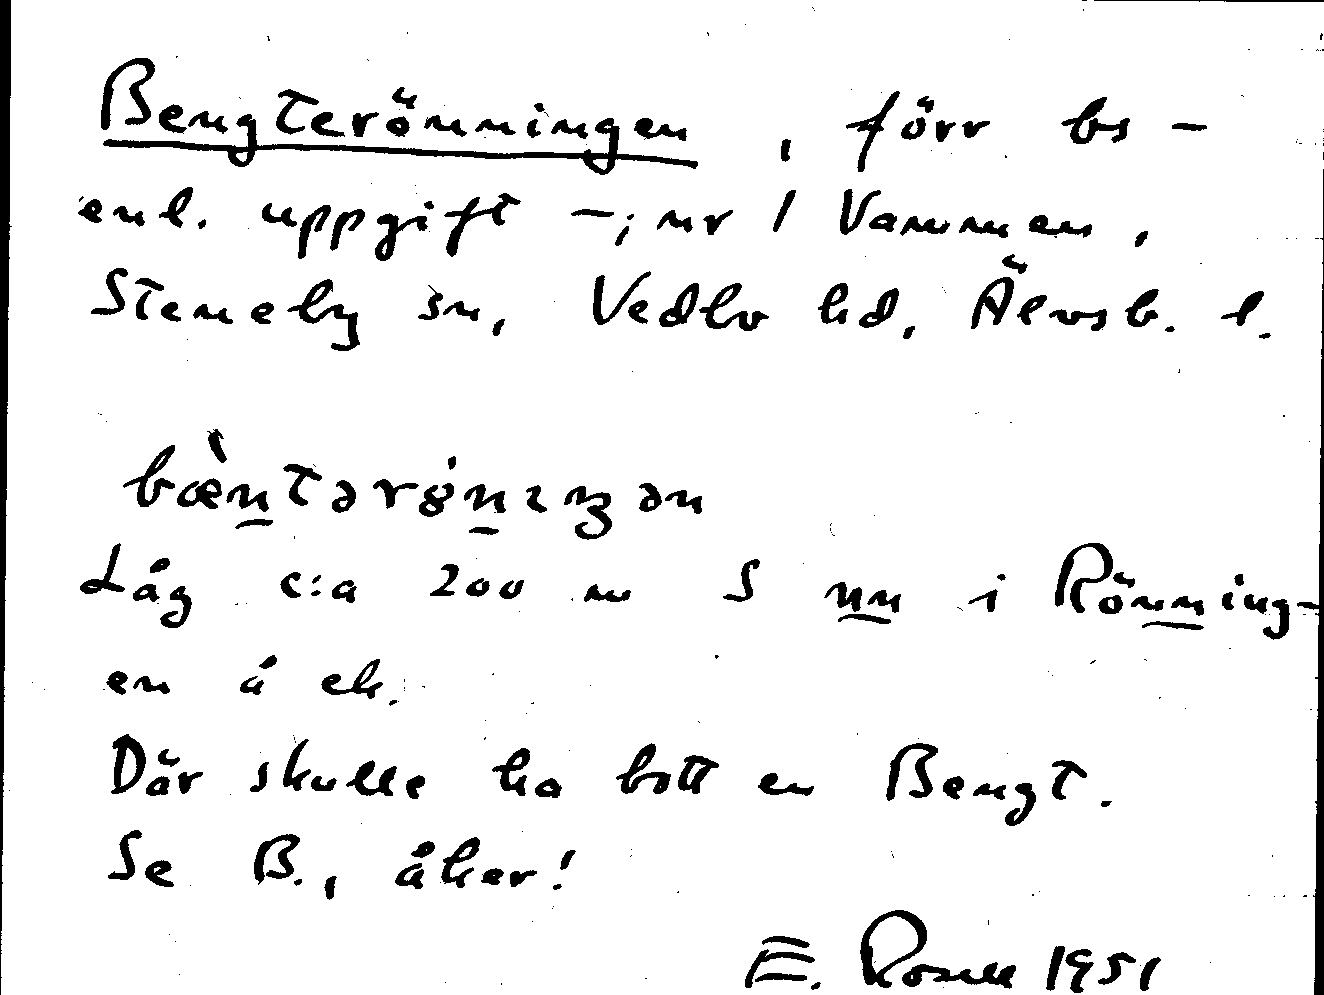 Bengterönningen, förr bs –
enl. uppgift –; nr 1 Vammen,
Steneby sn, Vedbo hd, Älvsb. l.
bæ̀ntərönıŋən
Låg c:a 200 m S nn i Rönning-
en å ek.
Där skulle ha bott en Bengt.
Se B., åker!
E. Rosell 1951